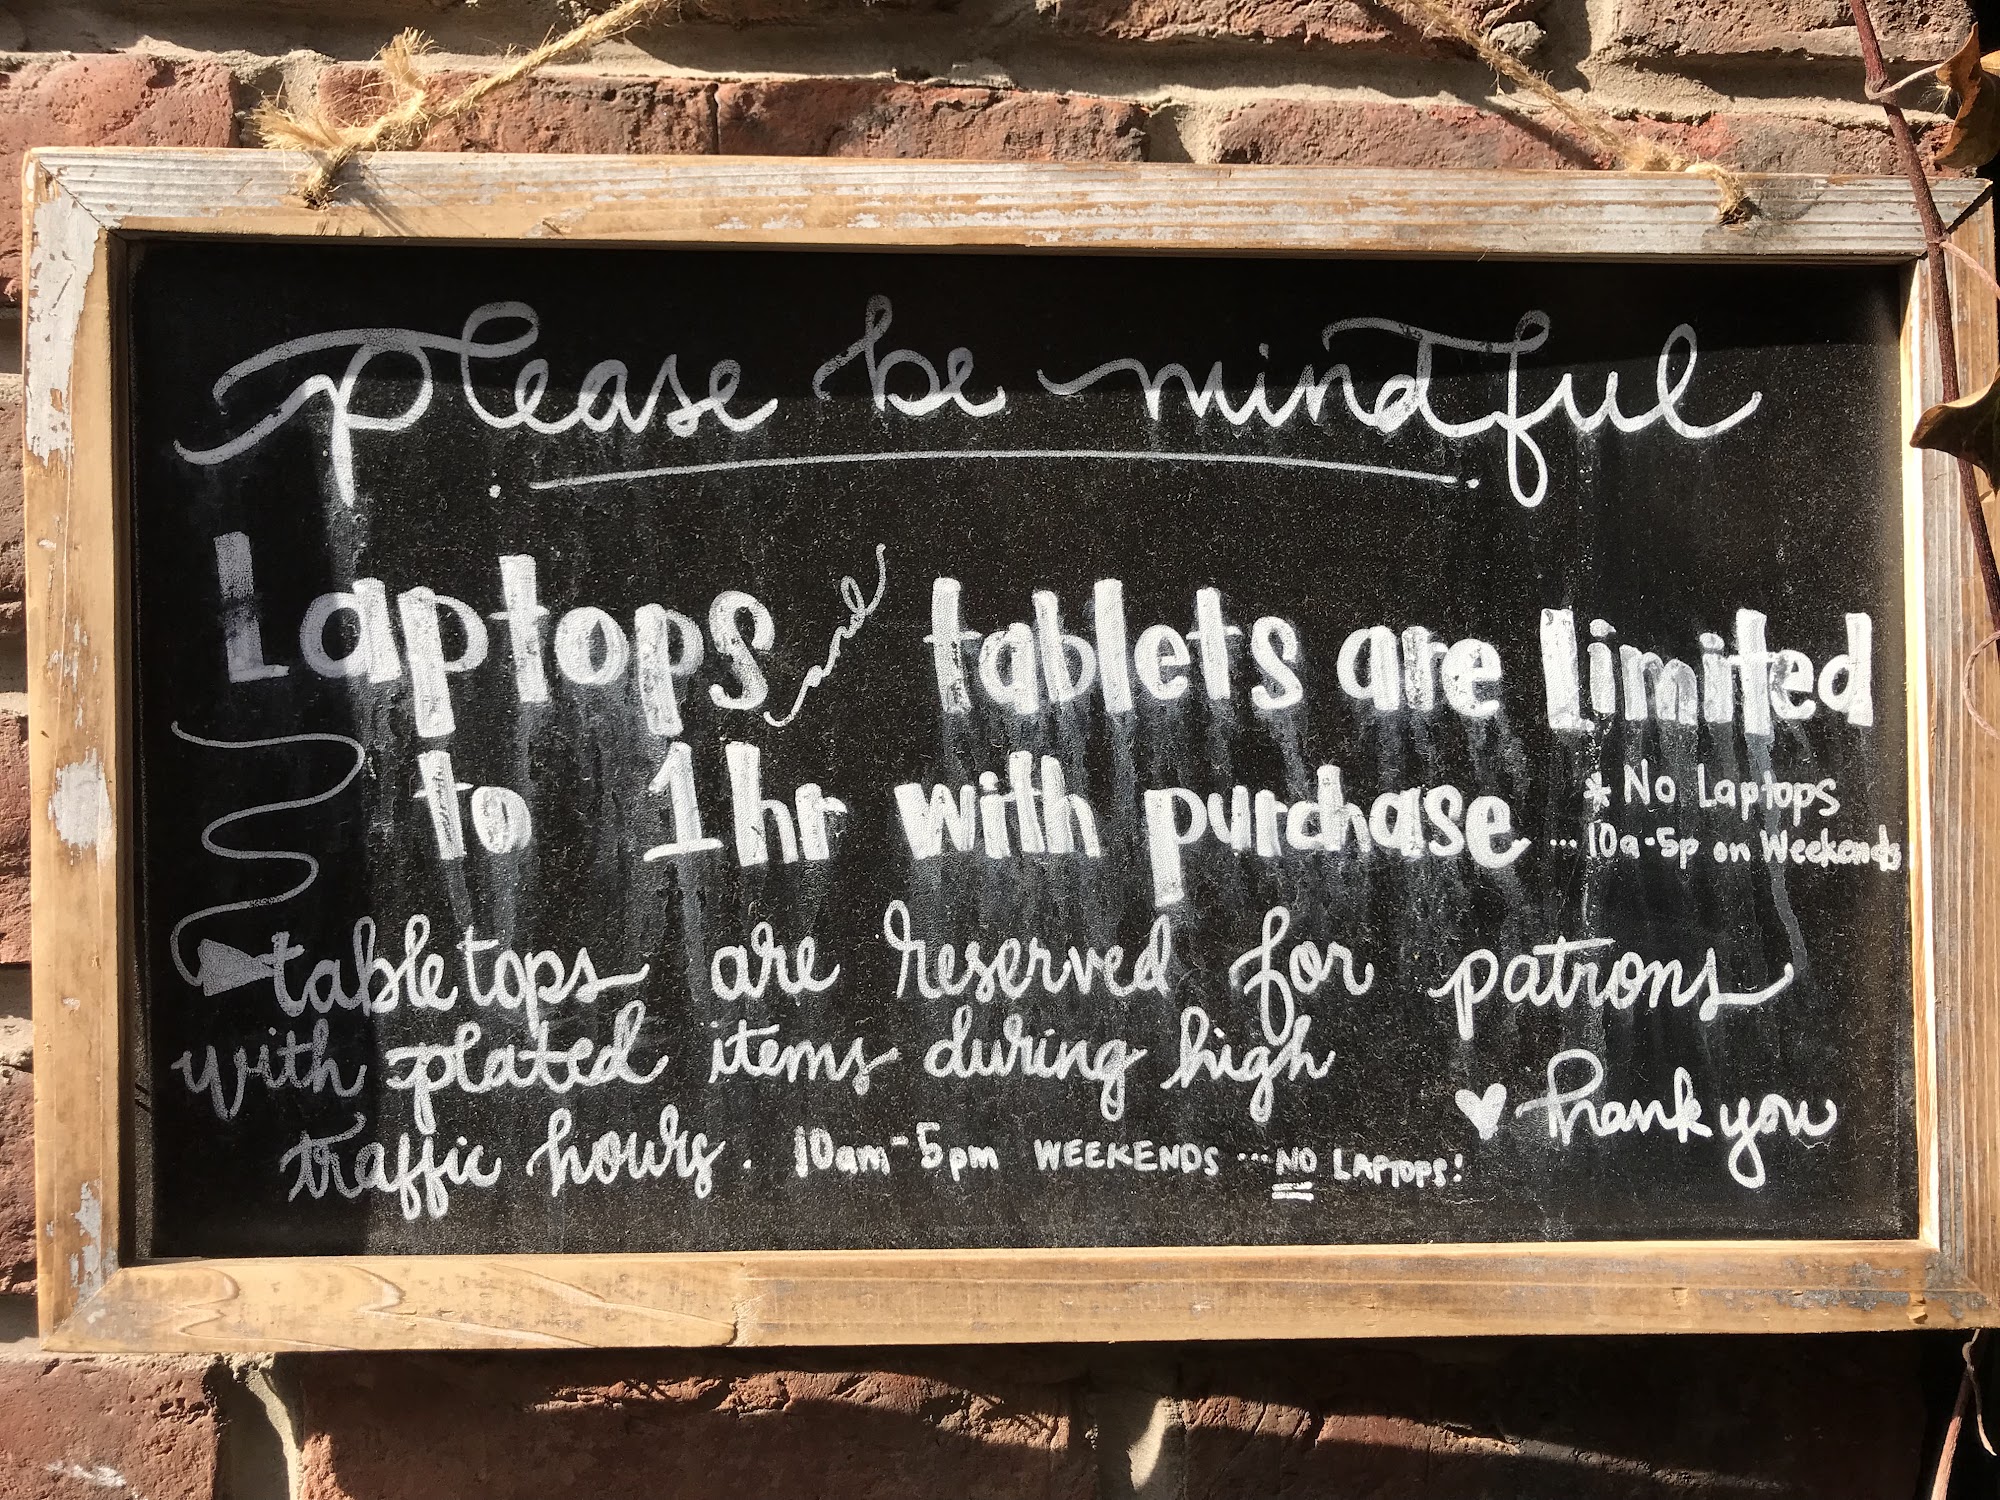 please be mindful
Laptops and tablets are limited
to 1hr with purchase
* No Laptops
...10a-5p on Weekends
tabletops are reserved for patrons
with plated items during high
traffic hours. 10am-5pm WEEKENDS ...NO LAPTOPS!
♥ thank you